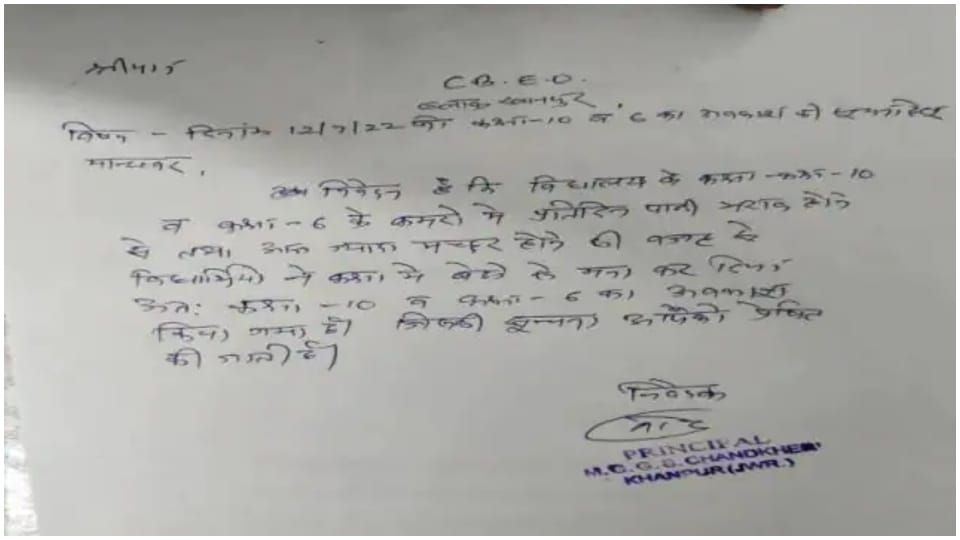 श्रीमान
C B. E. O.
ब्लाक खानपुर,
विषय - दिनांक 12/7/22 को कक्षा-10 व 6 का अवकाश की
मान्यवर,
निवेदन है कि विद्यालय के कक्षा-कक्ष-10
व कक्षा-6 के कमरो मे प्रतिदिन पानी भराव होने
से तथा आज ज्यादा मच्छर होने की वजह से
विद्यार्थियो ने कक्षा मे बेठने से मना कर दिया
अत: कक्षा-10 व कक्षा-6 का अवकाश
किया गया है। जिसकी सूचना आपको प्रेषित
की जाती है।
निवेदक
PRINCIPAL
M.G.G.S. CHANDKHERI
KHANPUR (JWR.)